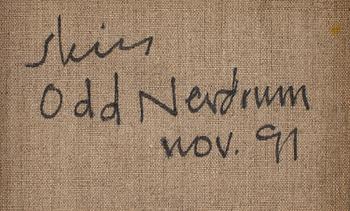 skiss
Odd Nerdrum
nov. 91